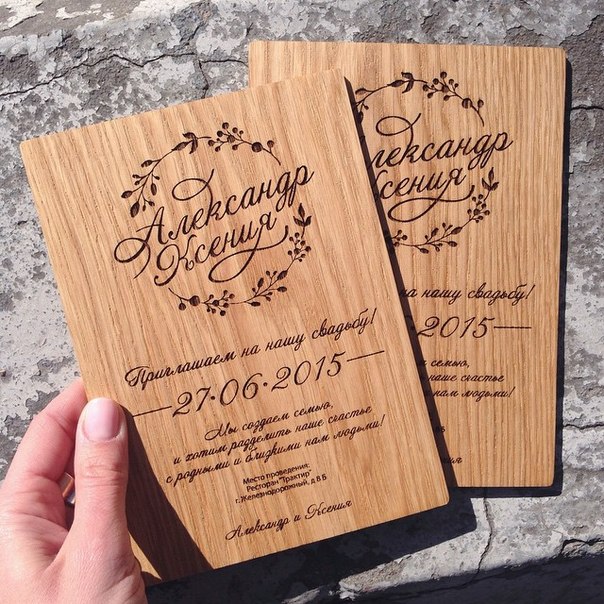 Александр
Ксения
Приглашаем на нашу свадьбу!
27·06·2015
Мы создаем семью,
и хотим разделить наше счастье
с родными и близкими нам людьми!
Место проведения:
Ресторан "Трактир"
г.Железнодорожный, д 8 Б
Александр и Ксения
лександр
Ксения
на нашу свадьбу!
06·2015
семью,
наше счастье
нам людьми!
Ксения